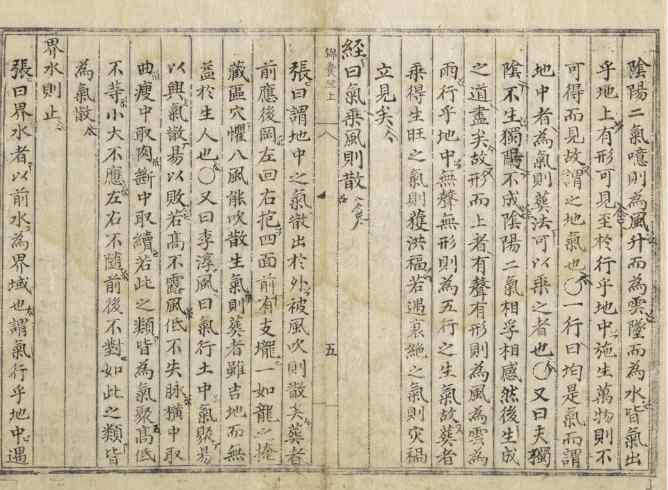 陰陽二氣噫則為風升而為雲墜而為水皆氣出
乎地上有形可見至於行乎地中施生萬物則不
可得而見故謂之地氣也〇一行曰均是氣而謂
地中者為氣則葬法可以乘之者也〇又曰夫獨
陰不生獨陽不成陰陽二氣相孚相感然後生成
之道盡矣故形而上者有聲有形則為風為雲為
雨行乎地中無聲無形則為五行之生氣故葬者
乘得生旺之氣則獲洪福若遇衰絶之氣則灾禍
立見矣
經曰氣乘風則散
錦囊經上
五
張曰謂地中之氣散出於外被風吹則散矣葬者
前應後岡左回右抱四面前有支壠一如龍之捲
藏區穴懼八風能吹散生氣則葬者雖吉地而無
益於生人也〇又曰李淳風曰氣行土中氣聚易
以興氣散易以敗若高不露風低不失脉橫中取
曲瘦中取肉斷中取續若此之類皆為氣聚高低
不等小大不應左右不隨前後不對如此之類皆
為氣散
界水則止
張曰界水者以前水為界域也謂氣行乎地中遇